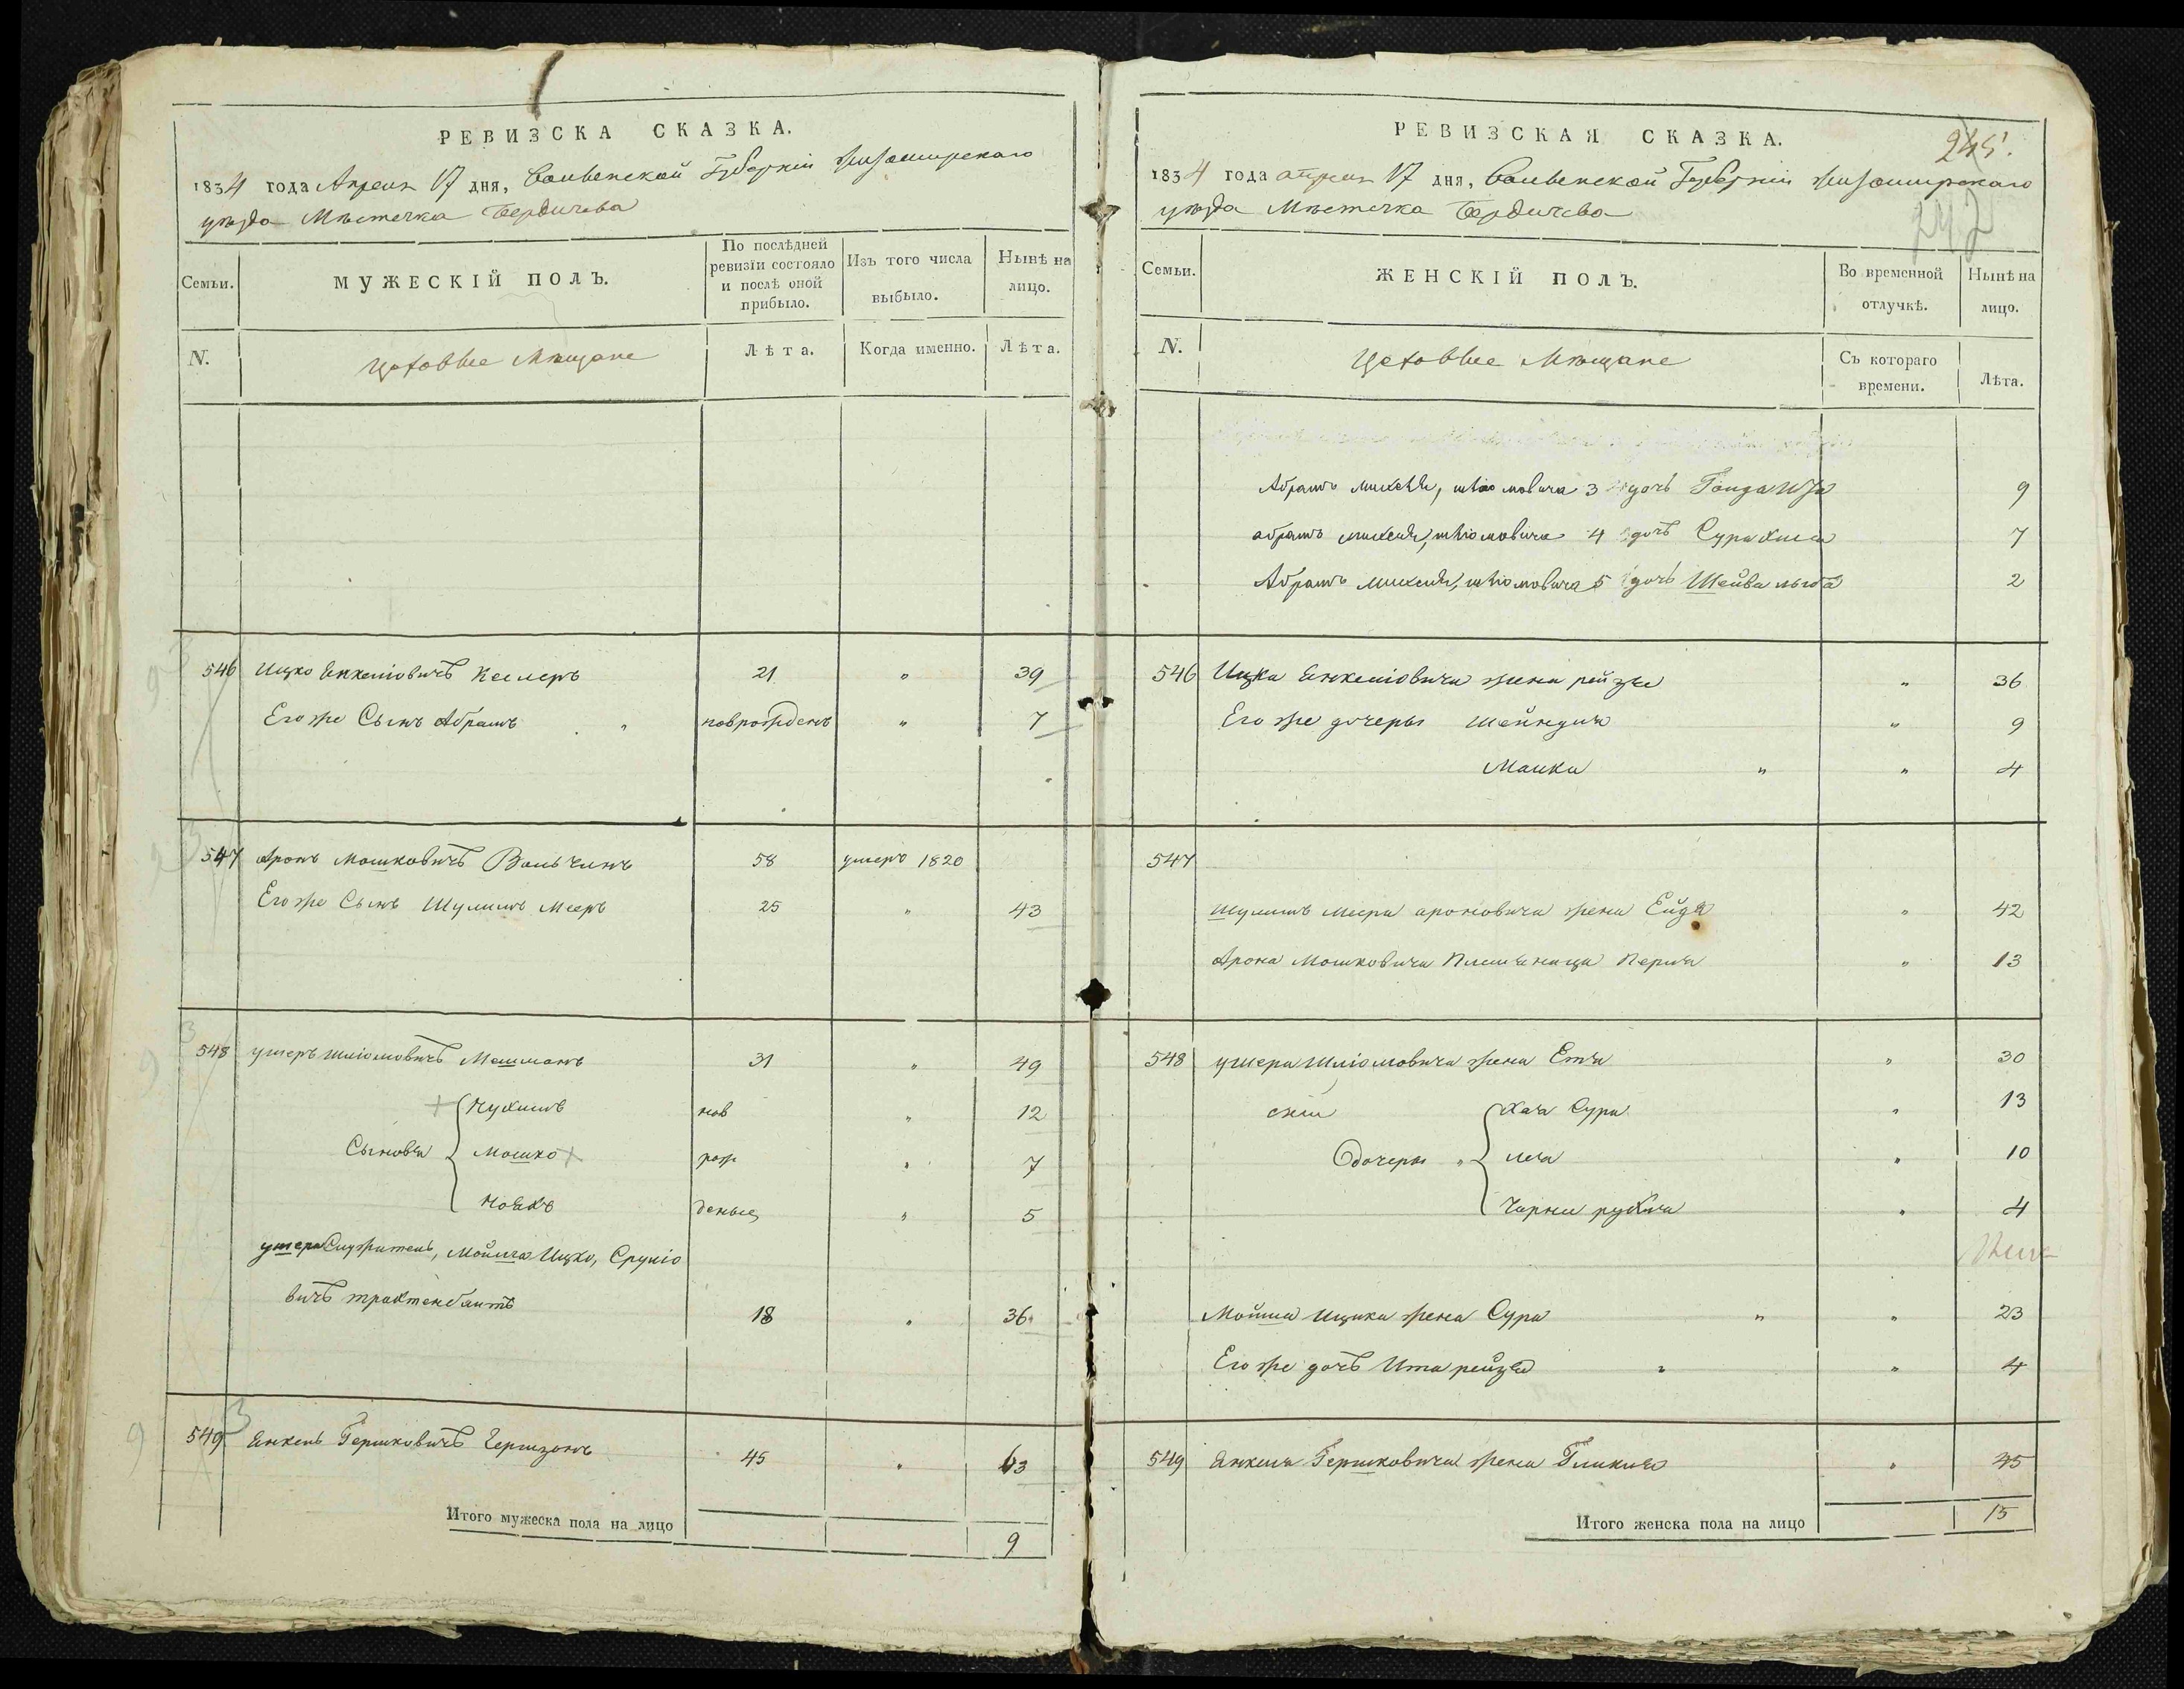 РЕВИЗСКА СКАЗКА.
1834 года Апреля 17 дня, Волынской Губернїи Житомирскаго
уѣзда Мѣстечка Бердичева
Семьи.
МУЖЕСКІЙ ПОЛЪ.
По послѣдней ревизїи состояло и послѣ оной прибыло.
Изъ того числа выбыло.
Нынѣ на лицо.
N.
Цеховые Мѣщане
Лѣта.
Когда именно.
Лѣта.
546 Ицко Енкелiовичъ Келлеръ 21 " 39
Его же Сынъ Абрамъ " новрожденъ " 7
547 Аронъ Мошковичъ Вольчинъ 58 умеръ 1820
Его же Сынъ Шулимъ Мееръ 25 " 43
548 Ушеръ Шліомовичъ Мошманъ 31 " 49
Нухимъ нов " 12
Сыновья Мошко рож " 7
Ноехъ деные " 5
Ушера Служитель, Мойша Ицко, Сруліо
вичъ трахтенбаитъ 18 " 36
549 Енкель Гершковичъ Гершзонъ 45 " 63
Итого мужеска пола на лицо 9
РЕВИЗСКАЯ СКАЗКА.
245.
1834 года апреля 17 дня, Волынской Губернїи Житомирскаго
242
уѣзда Мѣстечка Бердичева
Семьи.
ЖЕНСКІЙ ПОЛЪ.
Во временной отлучкѣ.
Нынѣ на лицо.
N.
Цеховые Мѣщане
Съ котораго времени.
Лѣта.
Абрамъ Михеля, шліомовича 3 дочь 9
абрамъ михеля, шліомовича 4 дочь Сура 7
Абрамъ михеля, шліомовича 5 дочь Шейва 2
546 Ицка Енкелiовича жена рейзя " 36
Его же дочеры Шейндля " 9
Малка " " 4
547
Шулимъ Меера ароновича жена Ейдя " 42
Арона Мошковича Племяница Перля " 13
548 Ушера Шліомовича жена Етя " 30
Хая Сура " 13
дочеры " Лея " 10
Чарна рухля " 4
Мойша Ицика жена Сура " " 23
Его же дочь Ита рейзя " " 4
549 Енкеля Гершковича жена Гликля " 45
Итого женска пола на лицо 15